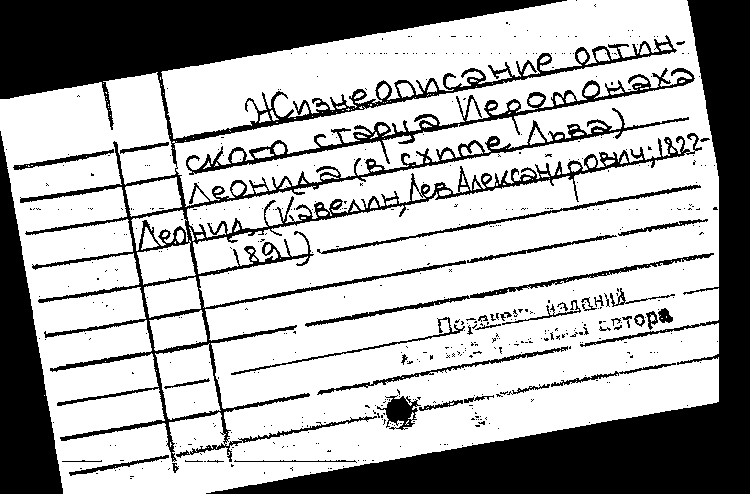 Жизнеописание оптин-
ского старца Иеромонаха
Леонида (в схиме Льва)
Леонид (Кавелин, Лев Александрович; 1822-
1891).
Перечень изданий
автора